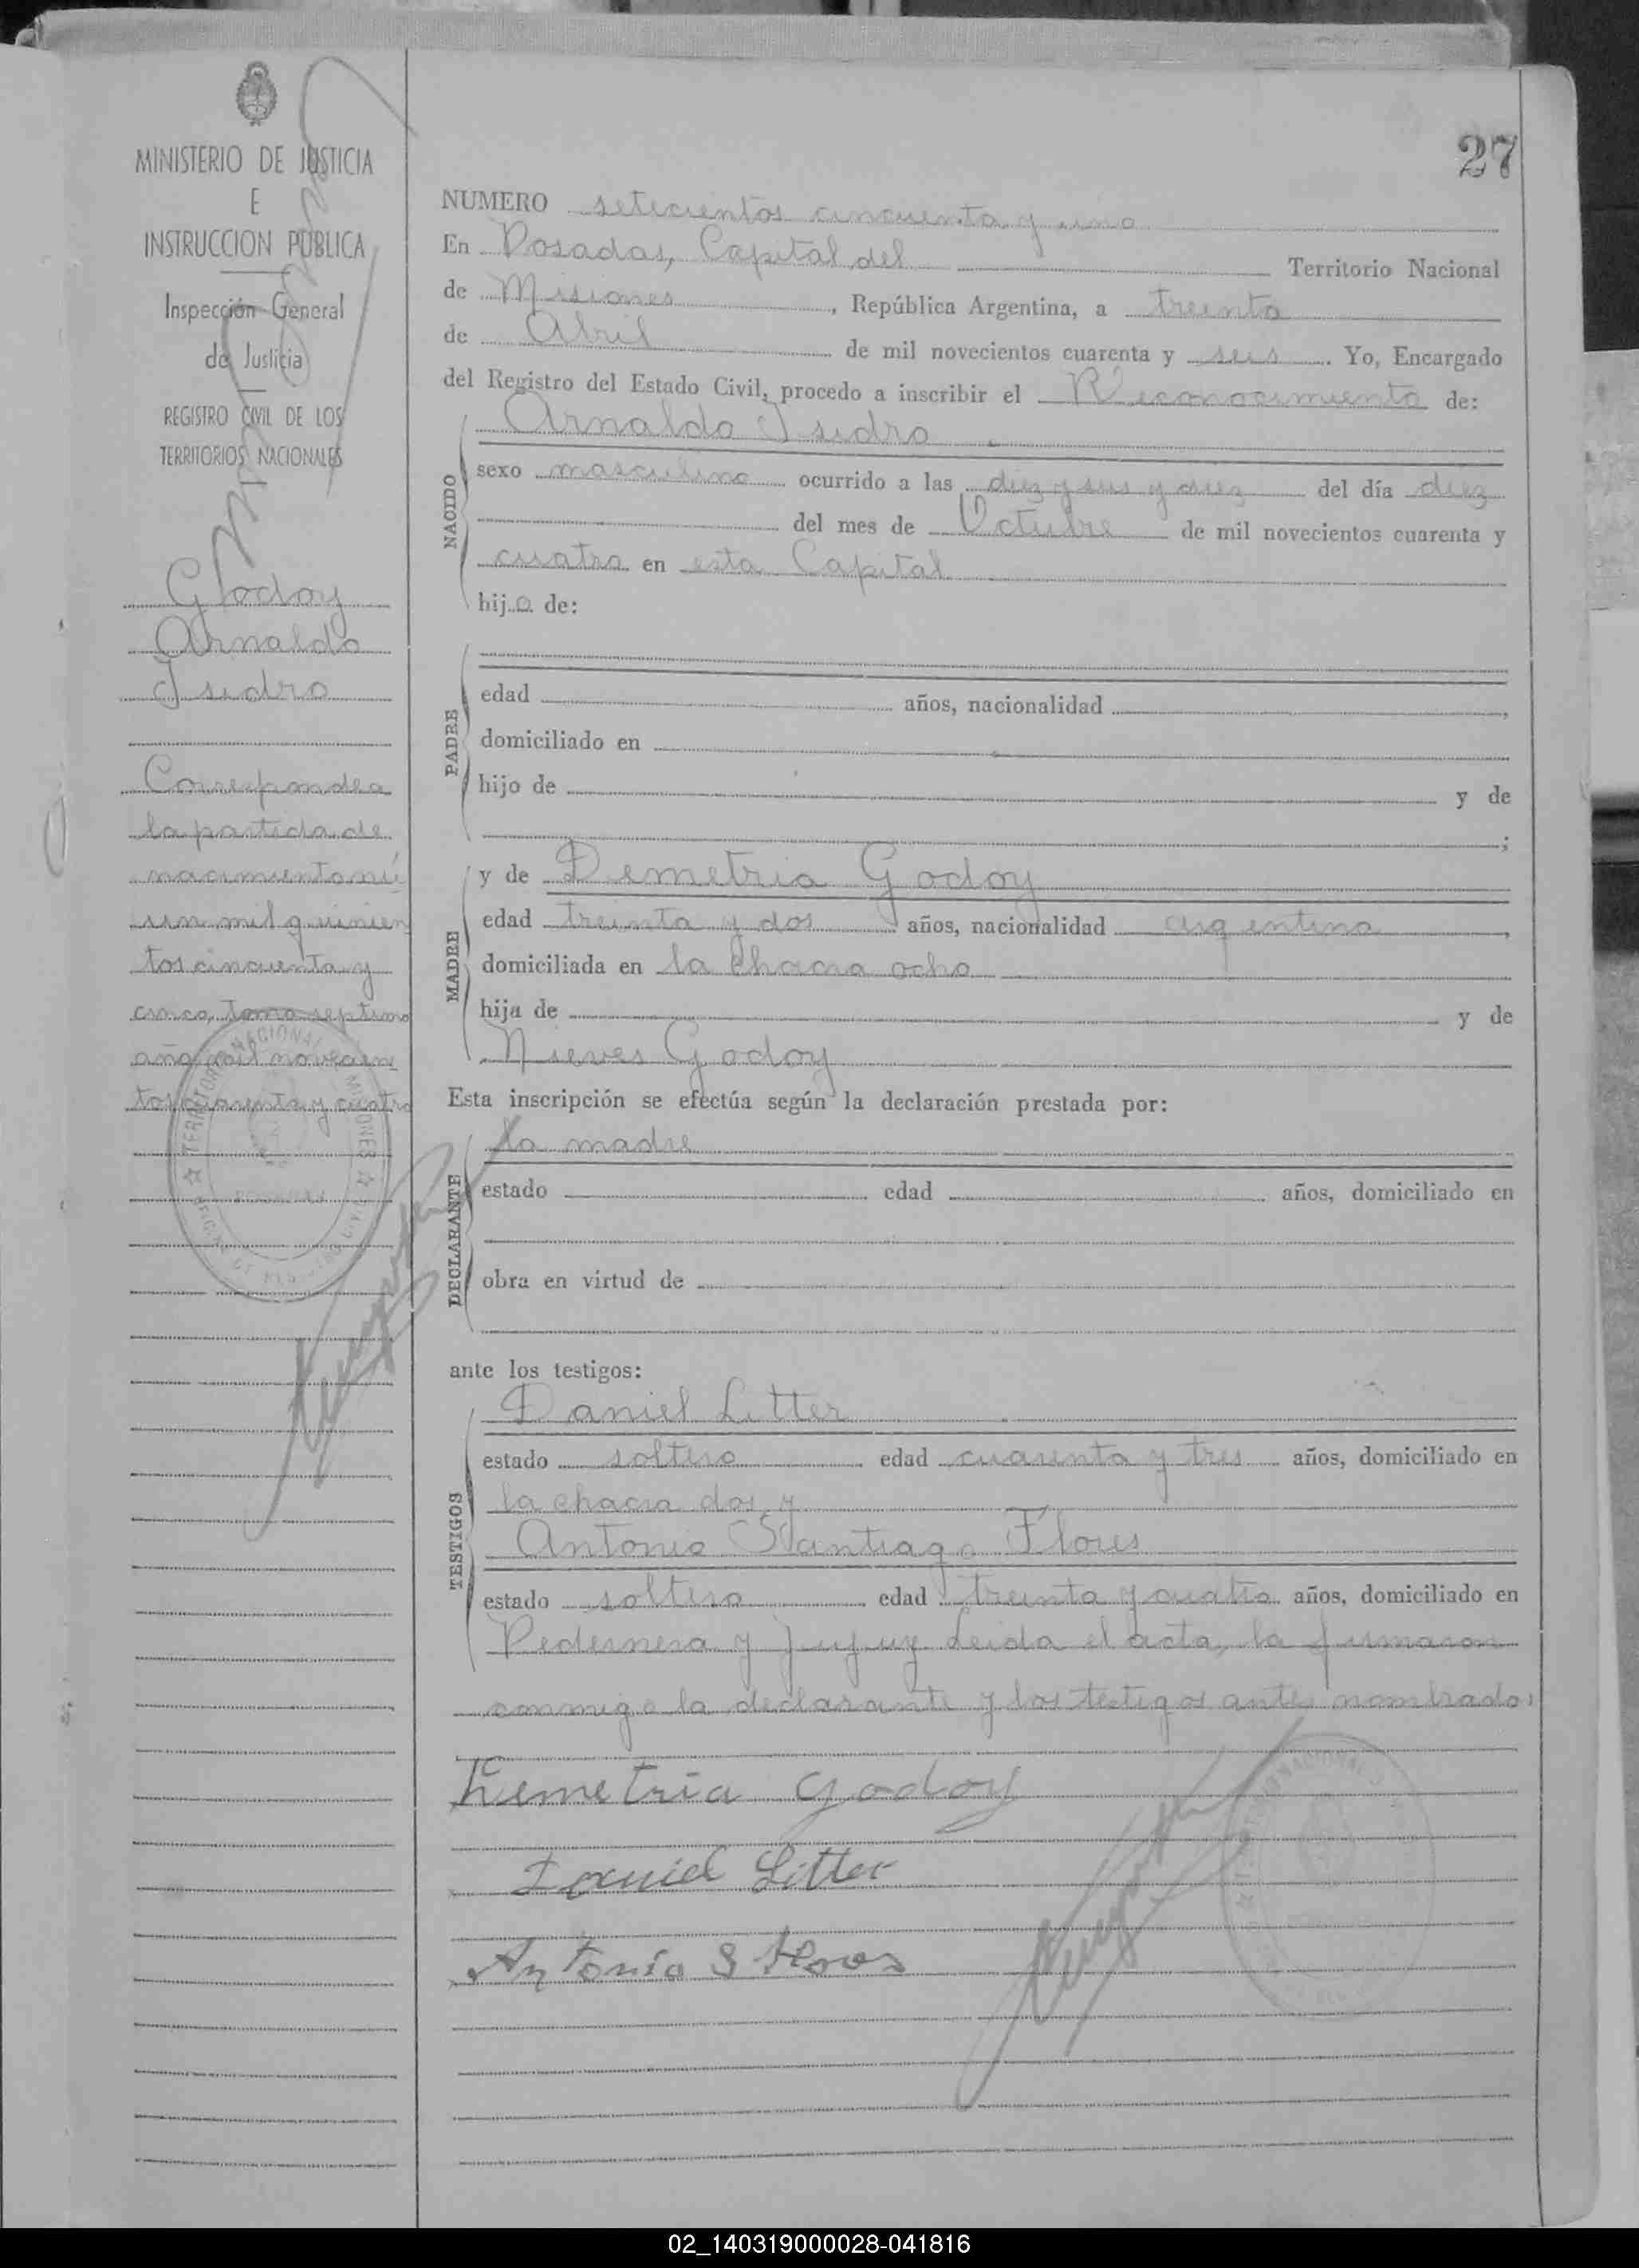 27
MINISTERIO DE JUSTICIA
E
INSTRUCCION PUBLICA
Inspección General
de Justicia
REGISTRO CIVIL DE LOS
TERRITORIOS NACIONALES
Godoy
Arnaldo
Isidro
Corresponde a
la partida de
nacimiento nú
un mil quinien
tos cincuenta y
cinco, tomo septimo
año mil novecien
tos cuarenta y cuatro
NUMERO setecientos cincuenta y uno
En Posadas, Capital del Territorio Nacional
de Misiones, República Argentina, a treinta
de Abril de mil novecientos cuarenta y seis. Yo, Encargado
del Registro del Estado Civil, procedo a inscribir el Reconocimiento de:
Arnaldo Isidro
NACIDO
sexo masculino ocurrido a las diez y seis y diez del día diez
del mes de Octubre de mil novecientos cuarenta y
cuatro en esta Capital
hijo de:
PADRE
edad años, nacionalidad ,
domiciliado en
hijo de y de
;
MADRE
y de Demetria Godoy
edad treinta y dos años, nacionalidad argentina,
domiciliada en la chacra ocho
hija de y de
Nieves Godoy
Esta inscripción se efectúa según la declaración prestada por:
DECLARANTE
la madre
estado edad años, domiciliado en
obra en virtud de
ante los testigos:
TESTIGOS
Daniel Litter
estado soltero edad cuarenta y tres años, domiciliado en
la chacra dos y
Antonio Santiago Flores
estado soltero edad treinta y cuatro años, domiciliado en
Pedernera y Jujuy. Leida el acta, la firmaron
conmigo la declarante y los testigos antes nombrados
Demetria Godoy
Daniel Litter
Antonio S Flores
02_140319000028-041816